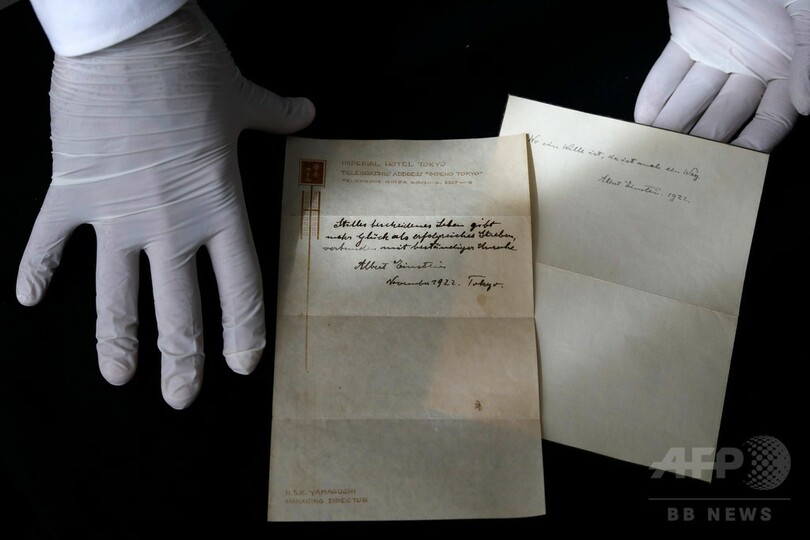 IMPERIAL HOTEL TOKYO
TELEGRAPHIC ADDRESS "IMPEHO TOKYO"
Stilles bescheidenes Leben gibt
mehr Glück als erfolgreiches Streben,
verbunden mit beständiger Unruhe.
Albert Einstein
November 1922. Tokyo.
H.S.K. YAMAGUCHI
MANAGING DIRECTOR
Wo ein Wille ist, da ist auch ein Weg.
Albert Einstein. 1922.
AFP
BB NEWS